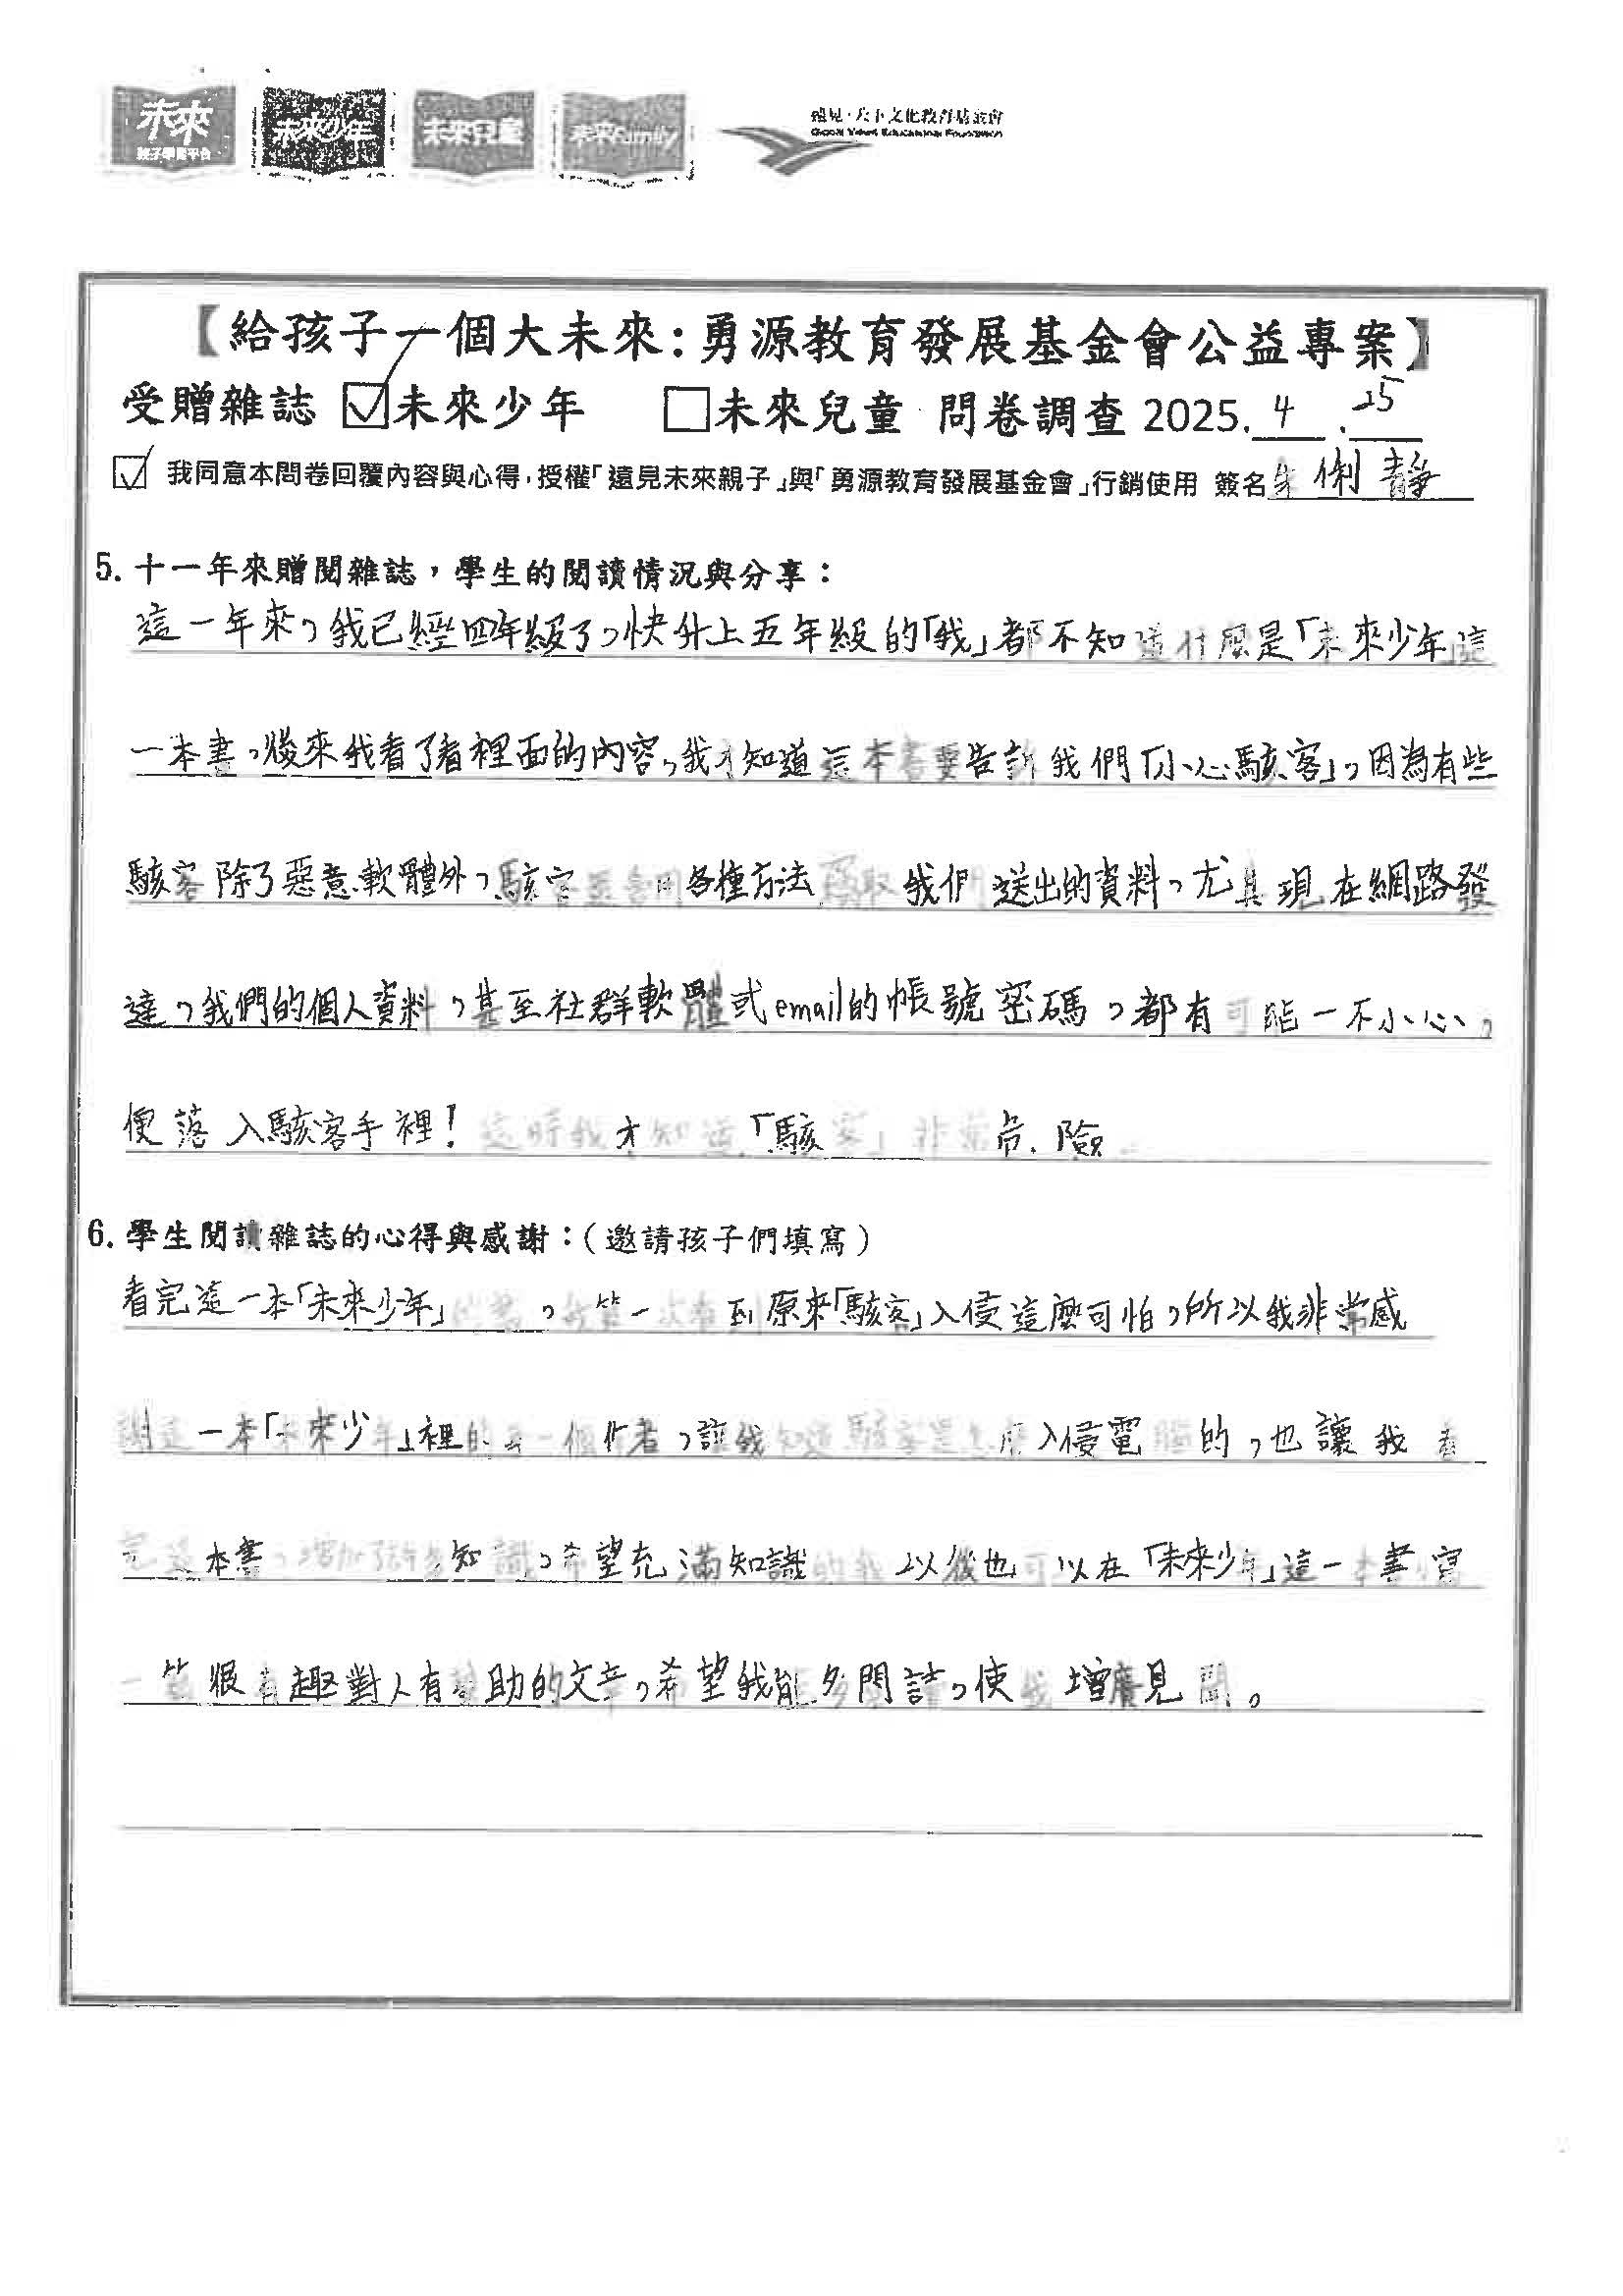 未來
親子學習平台
未來少年
未來兒童
未來Family
遠見‧天下文化教育基金會
Global Views Educational Foundation
【給孩子一個大未來:勇源教育發展基金會公益專案】
受贈雜誌 ☑未來少年 □未來兒童 問卷調查 2025. 4 . 25
☑ 我同意本問卷回覆內容與心得,授權「遠見未來親子」與「勇源教育發展基金會」行銷使用 簽名 朱俐靜
5. 十一年來贈閱雜誌,學生的閱讀情況與分享:
這一年來,我已經四年級了,快升上五年級的「我」都不知道什麼是「未來少年」這
一本書,後來我看了看裡面的內容,我才知道這本書要告訴我們「小心駭客」,因為有些
駭客除了惡意軟體外,駭客還會用各種方法竊取我們送出的資料,尤其現在網路發
達,我們的個人資料,甚至社群軟體或email的帳號密碼,都有可能一不小心,
便落入駭客手裡!這時我才知道「駭客」非常危險
6. 學生閱讀雜誌的心得與感謝:(邀請孩子們填寫)
看完這一本「未來少年」,我第一次看到原來「駭客」入侵這麼可怕,所以我非常感
謝這一本「未來少年」裡的每一個作者,讓我知道駭客是怎麼入侵電腦的,也讓我看
完這本書,增加了許多知識,希望充滿知識的我以後也可以在「未來少年」這一本書寫
一篇很有趣對人有幫助的文章,希望我能多閱讀,使我增廣見聞。